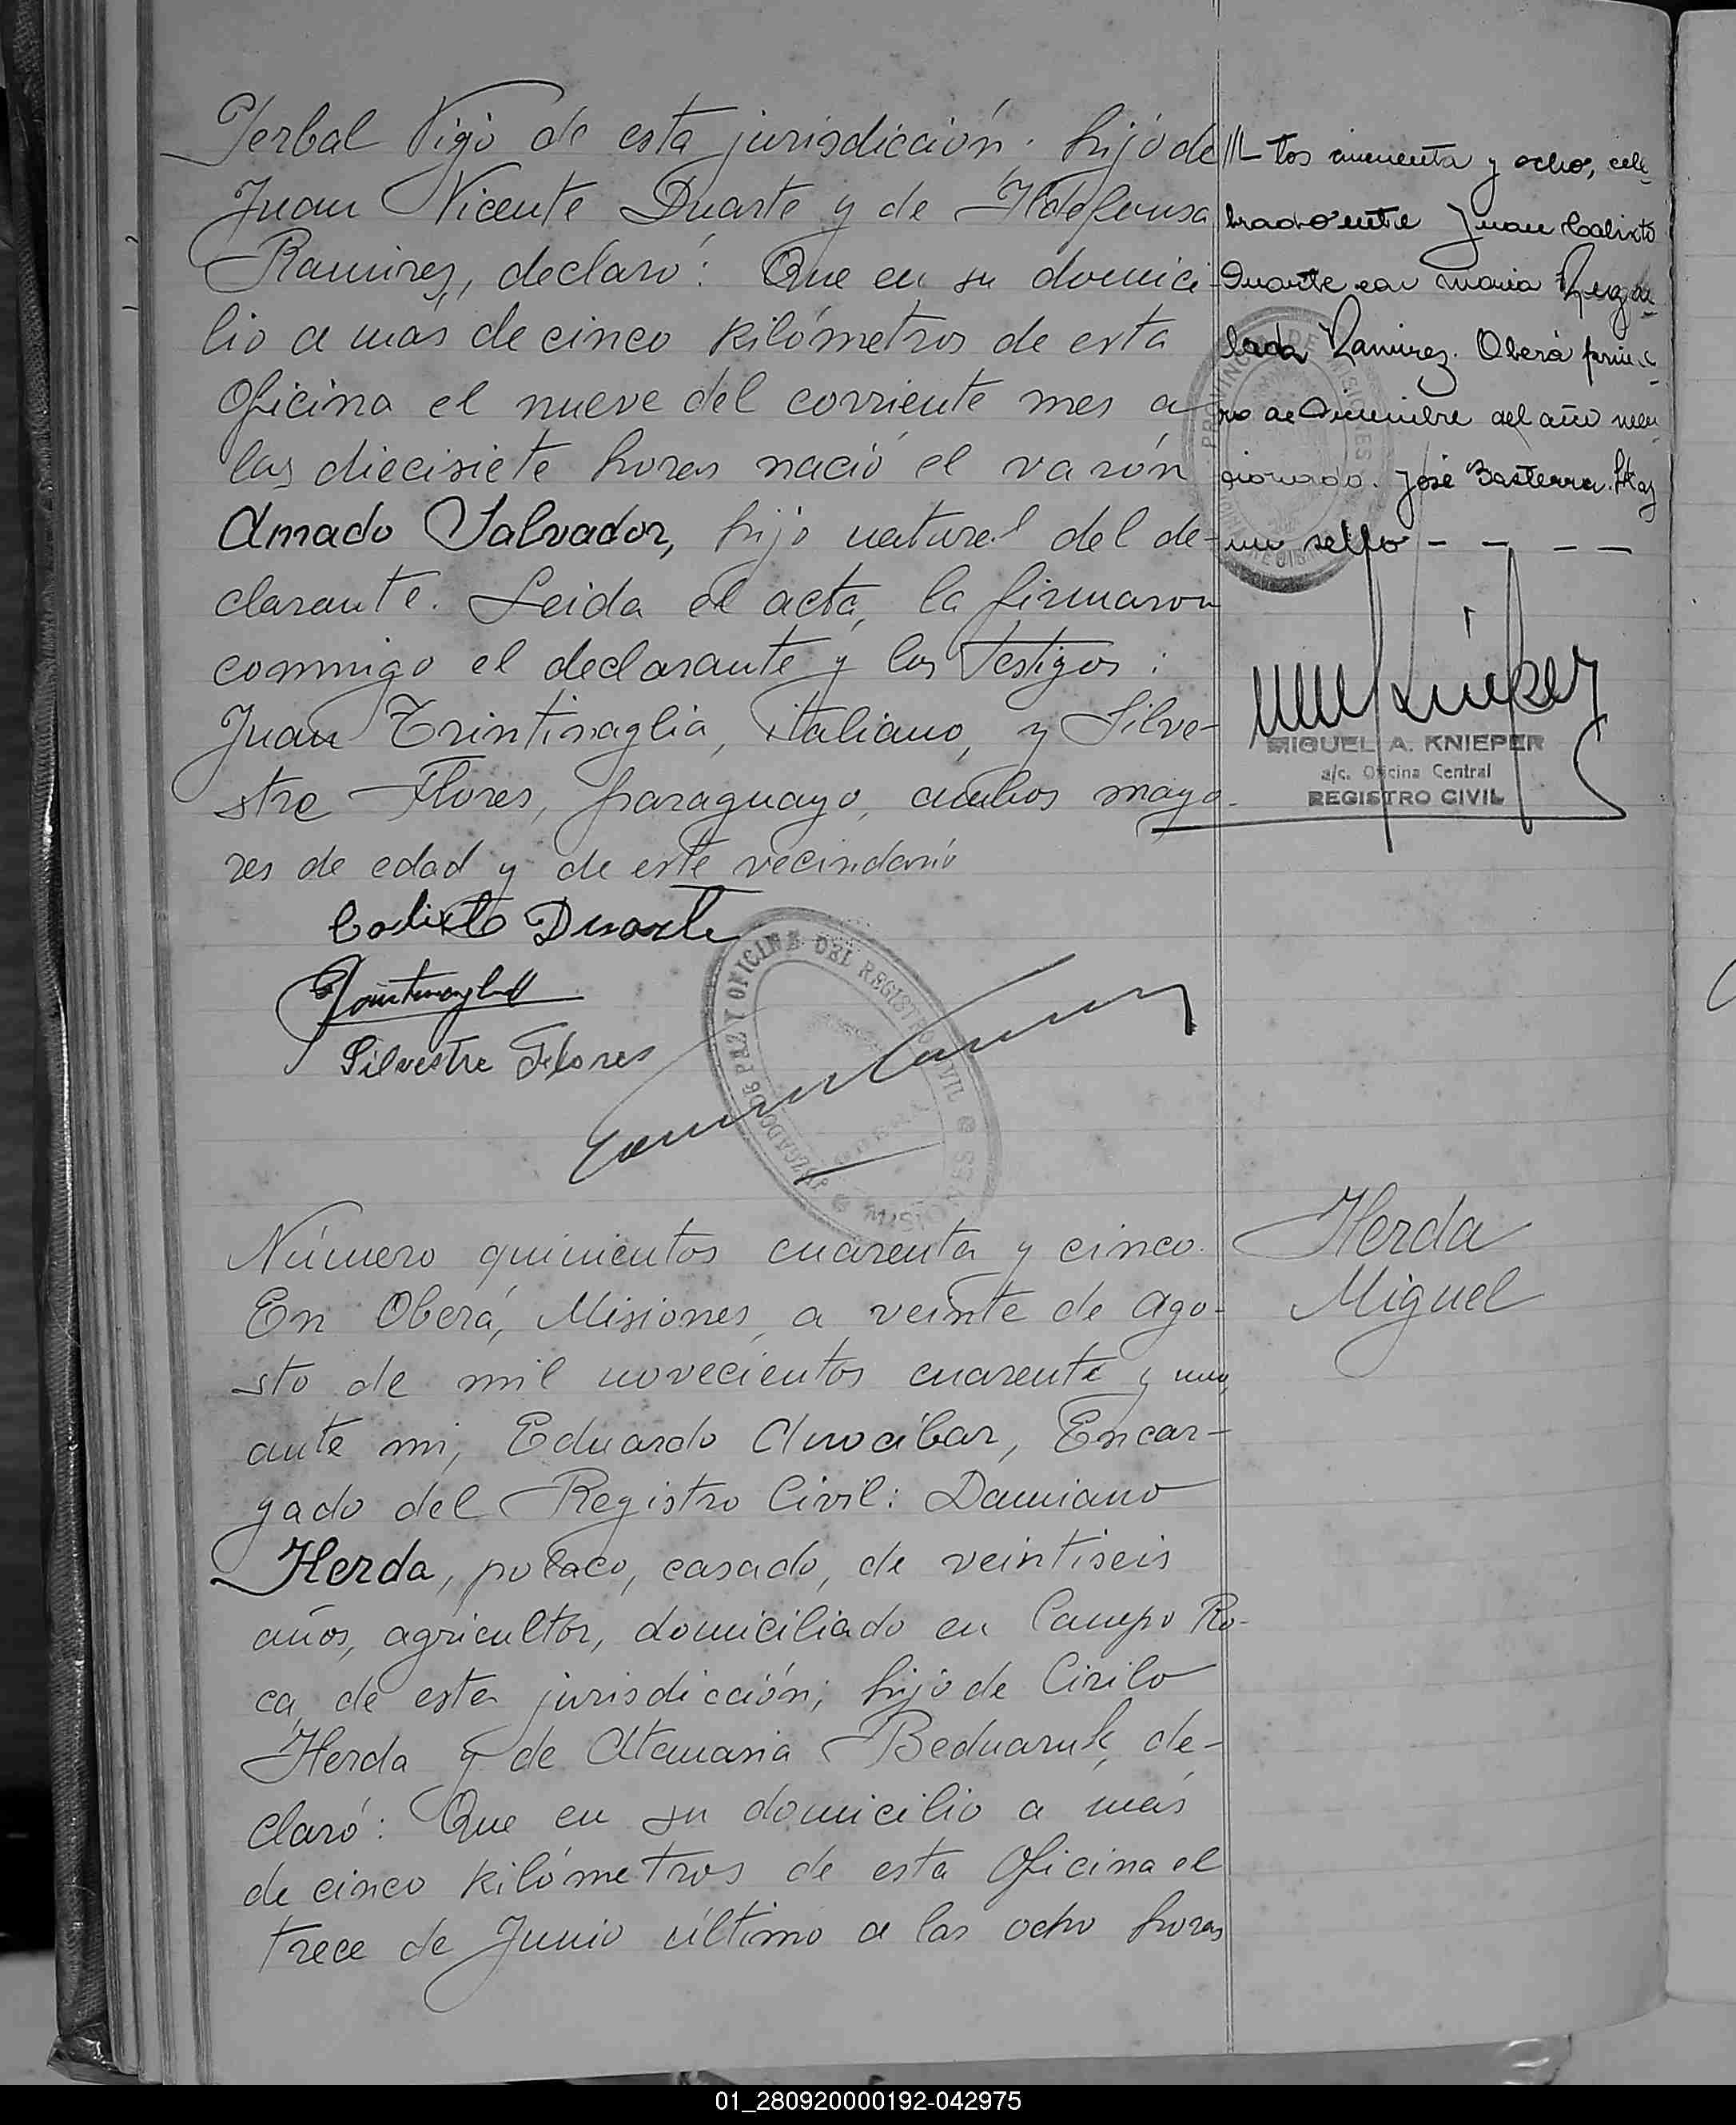 Yerbal Vigo de esta jurisdicción; hijo de
Juan Vicente Duarte y de Ildefonsa
Ramirez, declaró: Que en su domici-
lio a mas de cinco kilómetros de esta
Oficina el nueve del corriente mes a
las diecisiete horas nació el varón
Amado Salvador, hijo natural del de-
clarante. Leida el acta, la firmaron
conmigo el declarante y los testigos:
Juan Trintinaglia, italiano, y Silve-
stre Flores, paraguayo, ambos mayo-
res de edad y de este vecindario
Calixto Duarte
Silvestre Flores
JUZGADO DE PAZ Y OFICINA DEL REGISTRO CIVIL
MISIONES
///- tos cincuenta y ocho, cele-
brado entre Juan Calixto
Duarte con maria Rega-
lada Ramirez. Oberá prime-
ro de Diciembre del año men-
cionado. José Basterra. Hay
un sello - - - -
PROVINCIA DE MISIONES
MIGUEL A. KNIEPER
a/c. Oficina Central
REGISTRO CIVIL
Herda
Miguel
Número quinientos cuarenta y cinco.
En Oberá, Misiones, a veinte de Ago-
sto de mil novecientos cuarenta y uno,
ante mi, Eduardo Arrocibar, Encar-
gado del Registro Civil: Damiano
Herda, polaco, casado, de veintiseis
años, agricultor, domiciliado en Campo Ro-
ca, de esta jurisdicción; hijo de Cirilo
Herda y de Atanasia Bednaruk, de-
claró: Que en su domicilio a más
de cinco kilómetros de esta Oficina el
trece de Junio último a las ocho horas
01_280920000192-042975